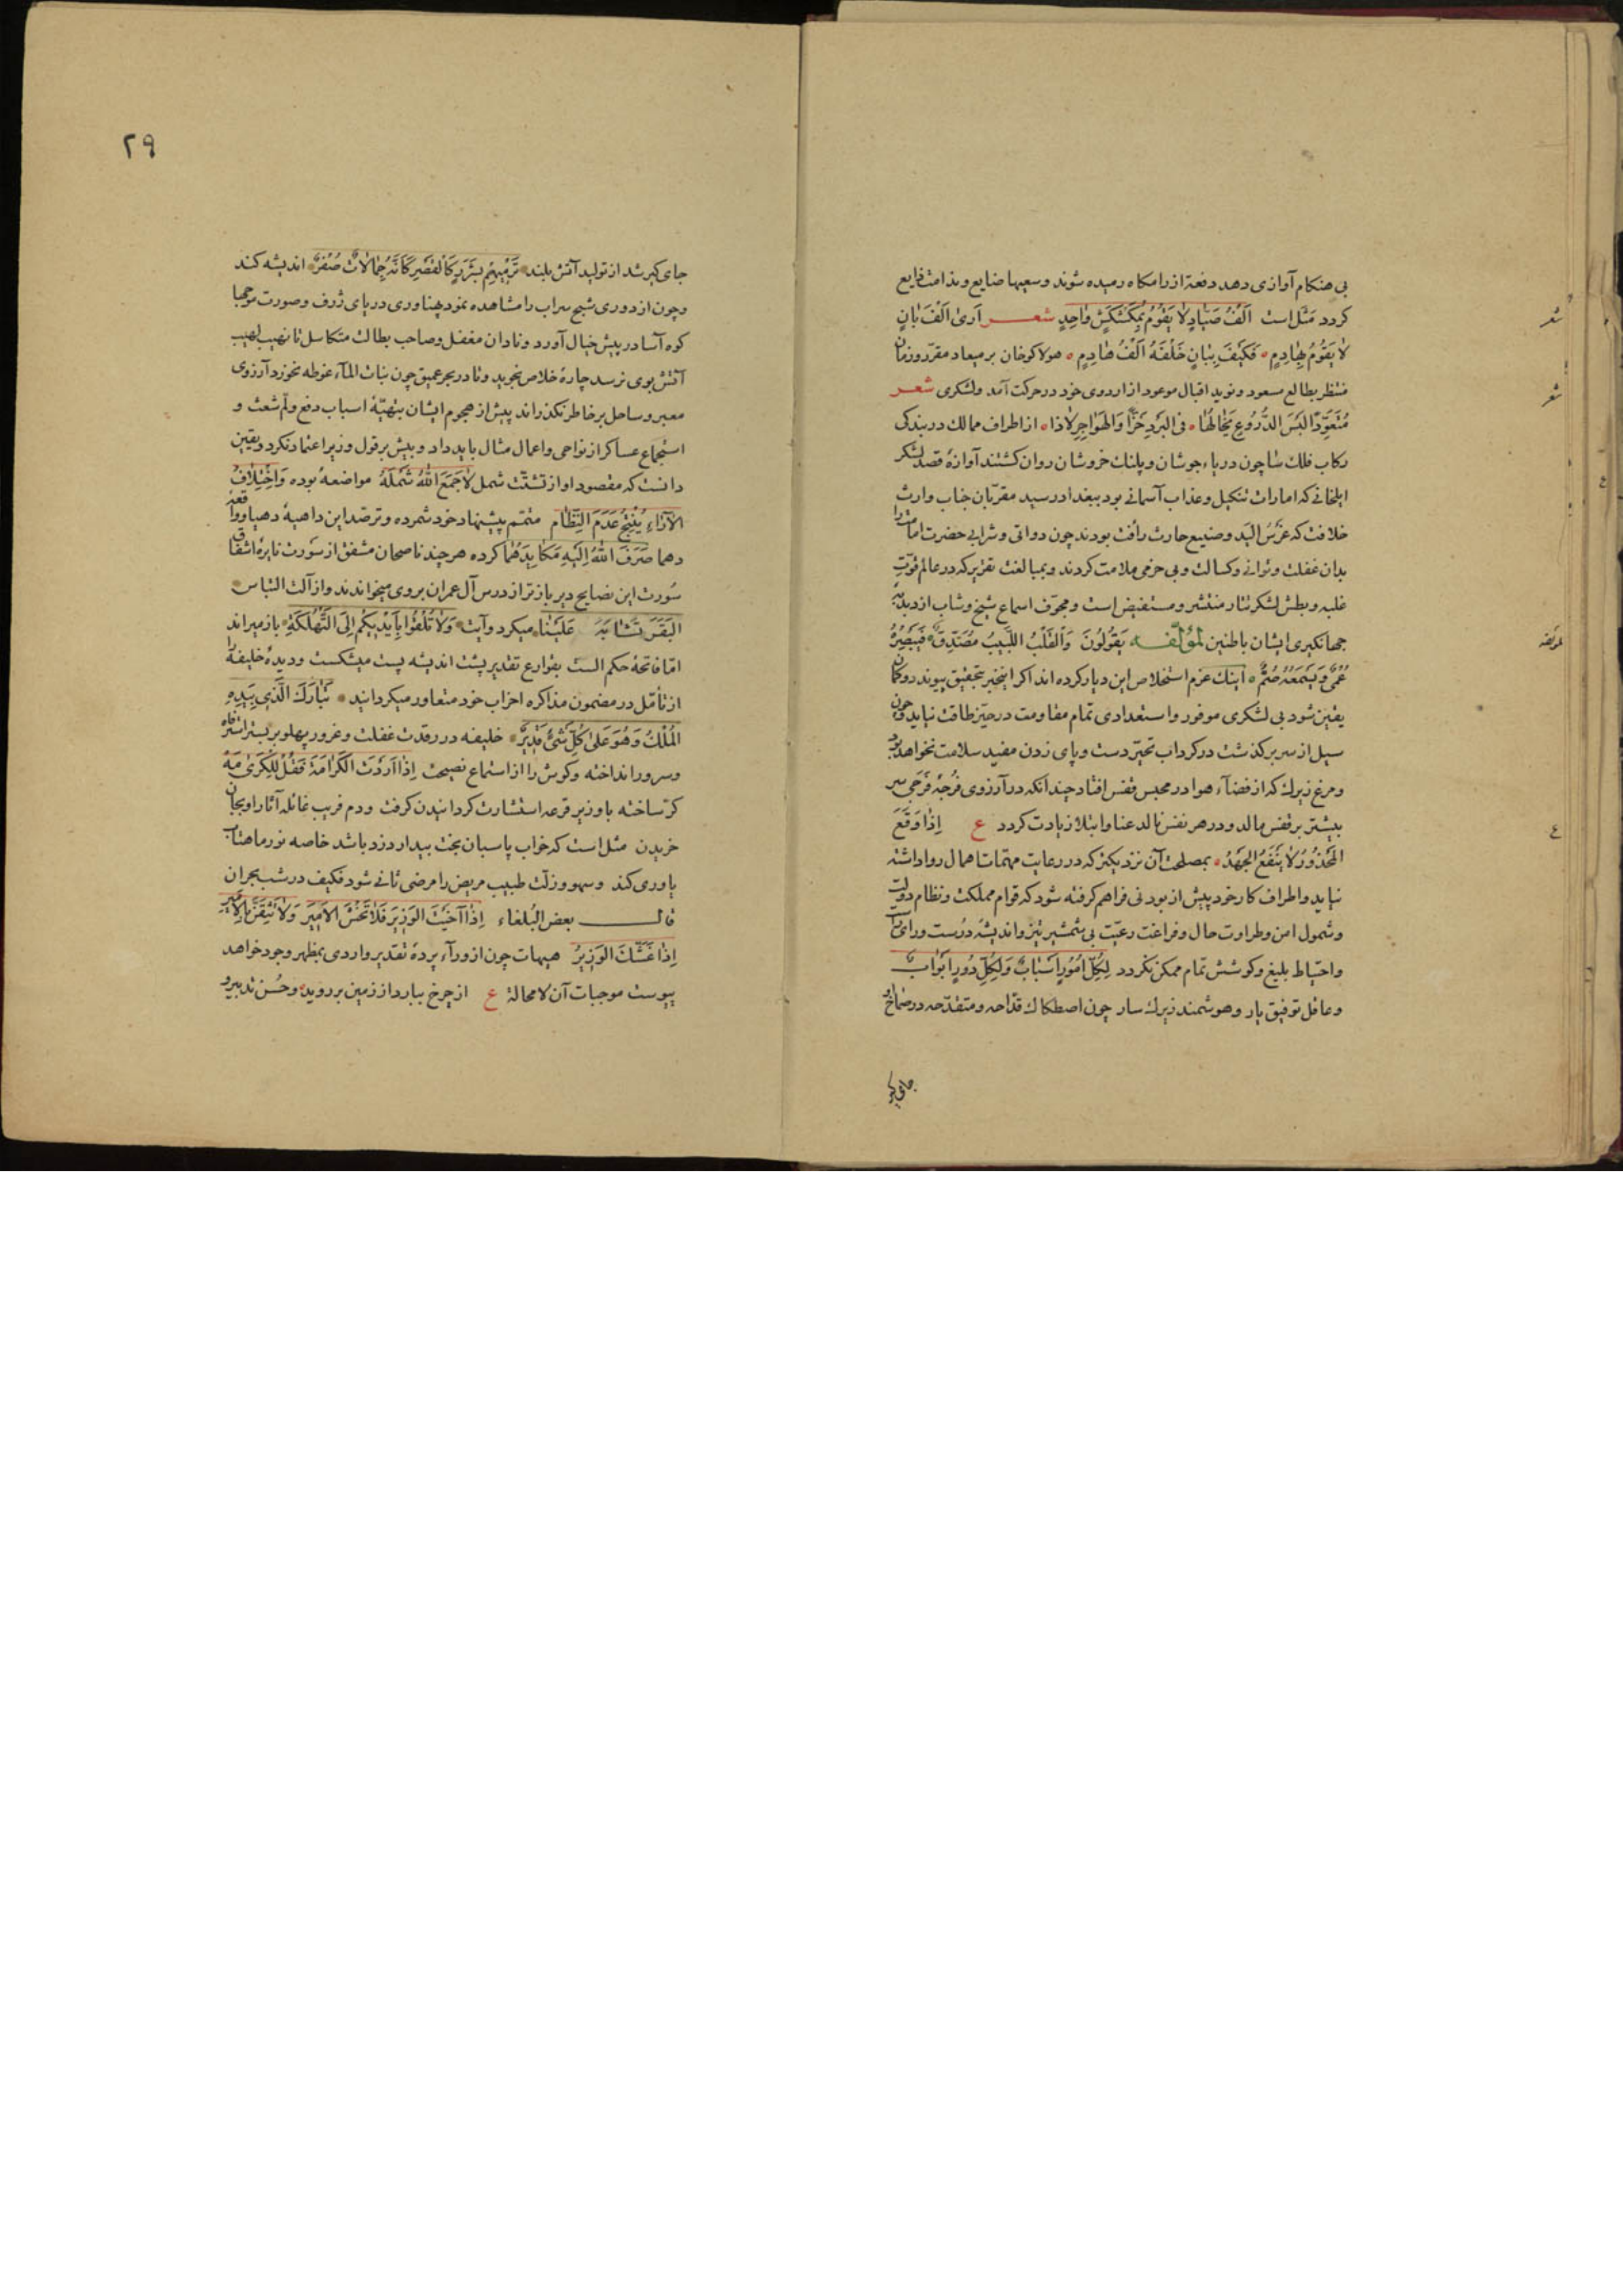 بی هنکام آوازی دهد دفعة از رامکاه رمیده شوند و سعیها ضایع و ندامت ذایع
کردد مَثَل است اَلْفُ صَیّادٍ لا یَقُومُ بِمُکَشْکِشٍ واحِدٍ شعر آری اَلْفَ بانٍ
لا یَقُومُ بِهادِمٍ فَکَیْفَ بِبانٍ خَلْفَهُ اَلْفُ هادِمٍ هولاکوخان بر میعاد مقرّر و زمان
منتظر بطالع مسعود و نوید اقبال موعود از اردوی خود در حرکت آمد و لشکری شعر
مُتَعَوِّدًا لُبْسَ الدُّرُوعِ یَخالُهَا فی البَرْدِ خَزًّا وَالهَواجِرِ لاذا از اطراف ممالک در بندکی
رکاب فلک سا چون دریاء جوشان و پلنک خروشان روان کشتند آوازهٔ قصد لشکر
ایلخانی که امارات تنکیل و عذاب آسمانی بود ببغداد رسید مقرّبان جناب وارث
خلافت که غَرْسُ الید و صنیع حارث رأفت بودند چون دواتی و شرابی حضرت امامت را
بدان غفلت و توانی و کسالت و بی حزمی ملامت کردند و بمبالغت تقریر که در عالم قوّت
غلبه و بطش لشکر تتار منتشر و مستفیض است و مجوّف اسماع شیخ و شاب از دبدبهٔ
جهانکیری ایشان باطنین لمؤلّفه یَقُولُونَ وَالْقَلْبُ اللَّبِیبُ مُصَدِّقٌ فَیُبْصِرُهُ
عُمْیٌ وَیَسْمَعُهُ صُمٌّ اینک عزم استخلاص این دیار کرده اند اکر اینخبر بتحقیق پیوندد و کمان
یقین شود بی لشکری موفور و استعدادی تمام مقاومت در حیّز طاقت نیاید و چون
سیل از سر بر کذشت در کرداب تحیّر دست و پای زدن مفید سلامت نخواهد بود
و مرغ زیرک که از فضآء هوا در محبس قفس افتاد چندانکه در آرزوی فُرجَهٔ فَرَجی سر
بیشتر بر قفس مالد و در هر نفس نالد عنا و ابتلا زیادت کردد ع اِذا وَقَعَ
المَحْذُورُ لا یَنْفَعُ الجَهْدُ بمصلحت آن نزدیکتر که در رعایت مهمّات اهمال روا داشته
نیاید و اطراف کار خود پیش از بودنی فراهم کرفته شود که قوام مملکت و نظام دولت
و شمول امن و طراوت حال و فراغت رعیّت بی شمشیر تیز و اندیشهٔ درست و رای
و احتیاط بلیغ و کوشش تمام ممکن نکردد لِکُلِّ اُمُورٍ اَسْبابٌ وَلِکُلِّ دُورٍ اَبْوابٌ
و عاقل توفیق یار و هوشمند زیرک سار چون اصطکاک قدّاحه و متقدّحه در صماخ او
جای کیر
شعر
شعر
ع
لمؤلفه
ع
٢٩
جای کیر شد از تولید آتش بلند تَرْمِیهِمْ بِشَرَرٍ کَالْقَصْرِ کَاَنَّهُ جِمالاتٌ صُفْرٌ اندیشه کند
و چون از دوری شبح سراب را مشاهده نمود پهناوری دریای ژرف و صورت موجها
کوه آسا در پیش خیال آورد و نادان مغفل و صاحب بطالت متکاسل تا نهیب لهیب
آتش بوی نرسد چارهٔ خلاص نجوید و تا در بحر عمیق چون نبات المآء غوطه نخورد آرزوی
معبر و ساحل بر خاطر نکذراند پیش از هجوم ایشان بتهیّهٔ اسباب دفع و لَمّ شعث و
استجماع عساکر از نواحی و اعمال مثال باید داد و بیش بر قول وزیر اعتماد نکرد و یقین
دانست که مقصود او از تشتّت شمل لا جَمَعَ اللهُ شَمْلَهُ مواضعهٔ بوده وَاخْتِلافُ
الآراءِ یُنْتِجُ عَدَمَ النِّظام متمّم پیشنهاد خود شمرده و ترصد این داهیهٔ دهیا و واقعهٔ
دهما صَرَفَ اللهُ اِلَیْهِ مَکایِدَهُما کرده هر چند ناصحان مشفق از سَورت نایرهٔ اشفاق
سُورت این نصایح دیر باز تر از درس آل عمران بروی میخواندند و از آلت التباس
البَقَرَ تَشابَهَ عَلَیْنا میکرد و آیت وَلا تُلْقُوا بِاَیْدِیکُمْ اِلَی التَّهْلُکَةِ باز میراند
امّا فاتحهٔ حکم الست بقوارع تقدیر پشت اندیشه پست میشکست و دیدهٔ خلیفه را
از تأمّل در مضمون مذاکره احزاب خود متعاور میکردانید تَبارَکَ الَّذِی بِیَدِهِ
المُلْکُ وَهُوَ عَلی کُلِّ شَیْءٍ قَدِیرٌ خلیفه در رقدت غفلت و غرور پهلو بر بستر استرفاه
و سرور انداخته و کوش را از استماع نصیحت اِذا اَرَدْتَ الکَرامَةَ فَقُلْ لِلْکَری مَهْ
کر ساخته با وزیر قرعه استشارت کردانیدن کرفت و دم فریب غائله آثار او بجان
خریدن مثل است که خواب پاسبان بخت بیدار دزد باشد خاصه نور ماهتاب
یاوری کند و سهو و زلّت طبیب مریض را مرضی ثانی شود فکیف در شب بحران
قال بعض البُلغاء اِذا آخَیْتَ الوَزِیرَ فَلا تَخْشَ الاَمِیرَ وَلا تَثِقَنَّ بِالاَمِیرِ
اِذا غَشَّکَ الوَزِیرُ هیهات چون از ورآء پردهٔ تقدیر واردی بمظهر وجود خواهد
پیوست موجبات آن لا محالة ع از چرخ ببارد از زمین بر روید و حُسن تدبیر و